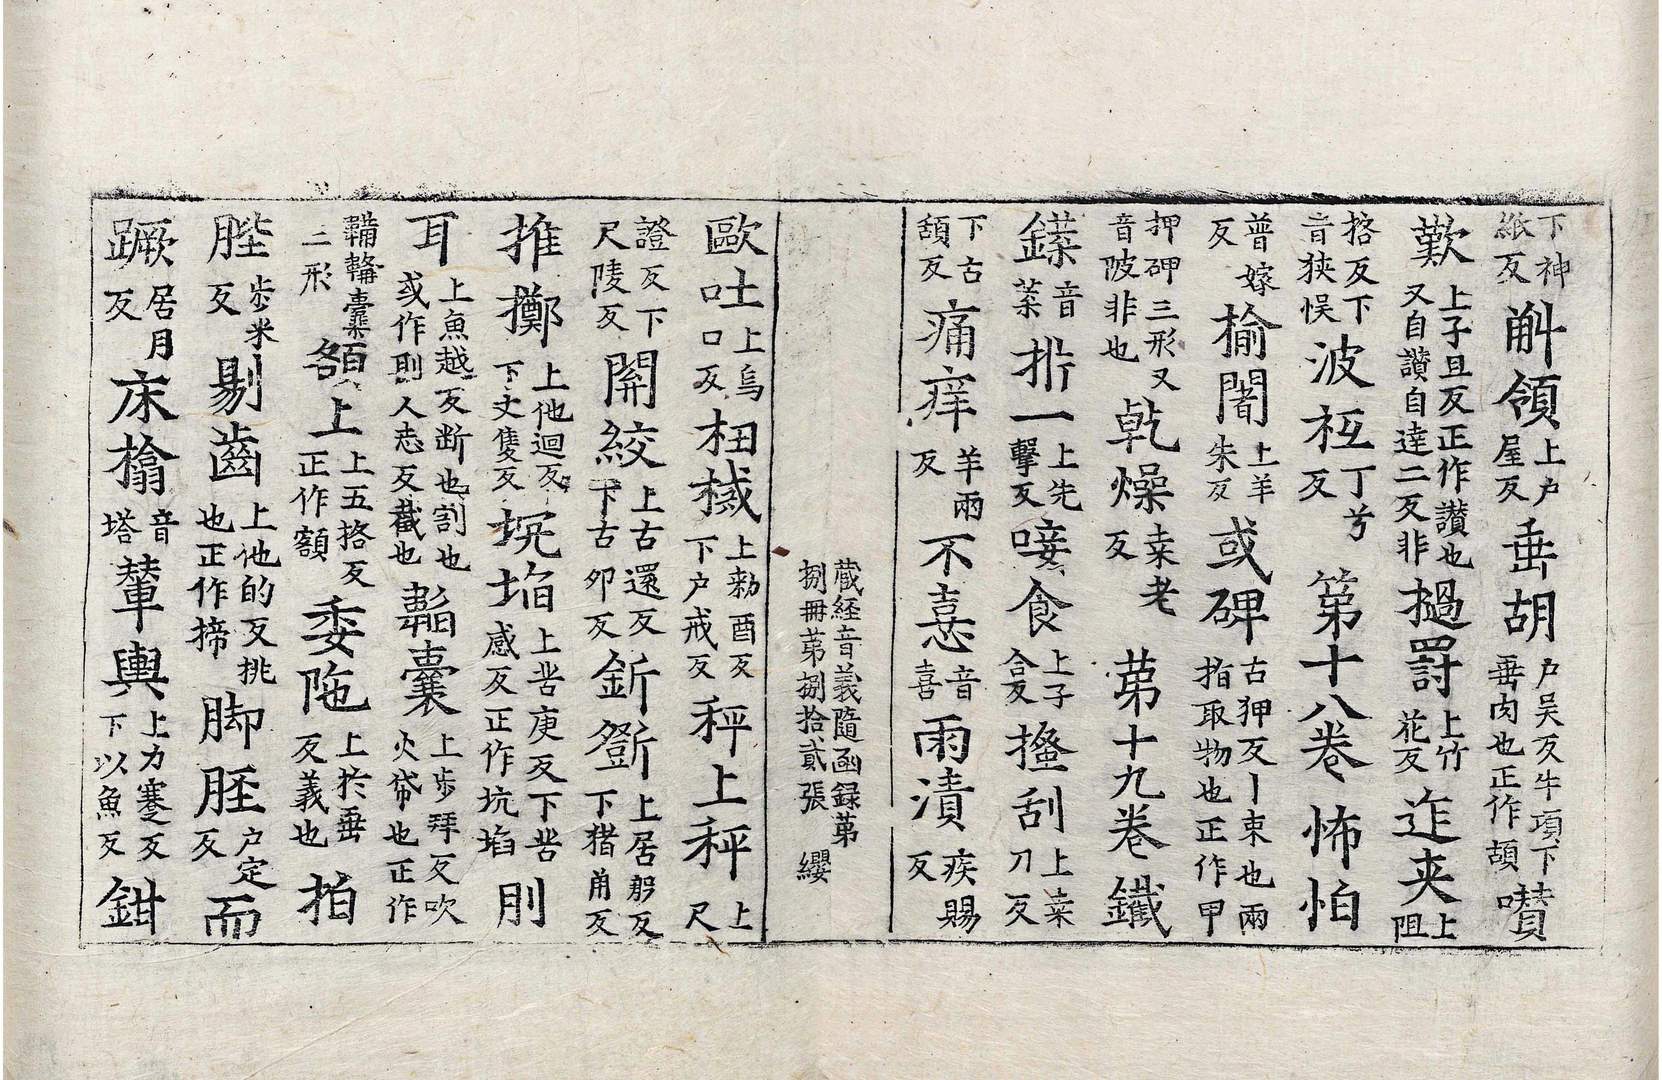 下神紙反斛領上户屋反垂胡户吴反牛項下垂肉也正作頡囋
歎上子旦反正作讃也又自讃自達二反非撾罸上竹花反迮夹上阻
挌反下音狭悮波柾丁兮反第十八卷怖怕
普嫁反揄闍上羊朱反或碑古狎反丨束也兩指取物也正作甲
押砰三形又音陂非也乾燥桒老反苐十九卷鐵
鏷音菜折一上先擊反唼食上子合反搔刮上桒刀反
下古頟反痛痒羊兩反不憙音喜雨漬疾賜反
蔵経音義隨函録苐捌冊苐捌拾貳張 纓
歐吐上烏口反杻械上勑酉反下户戒反秤上秤上尺
證反下尺陵反開絞上古還反下古夘反釿斵上居躬反下猪角反
推擲上他迴反下丈隻反坑埳上苦庚反下苦感反正作坑埳則
耳上魚越反断也割也或作則人志反截也韛囊上步拜反吹火帒也正作
韛韛橐二形額上上五挌反正作額委陁上扵垂反義也拍
髀步米反剔齒上他的反挑也正作揥脚胫户定反而
蹶居月反床榻音塔輦輿上力蹇反下以魚反鉗